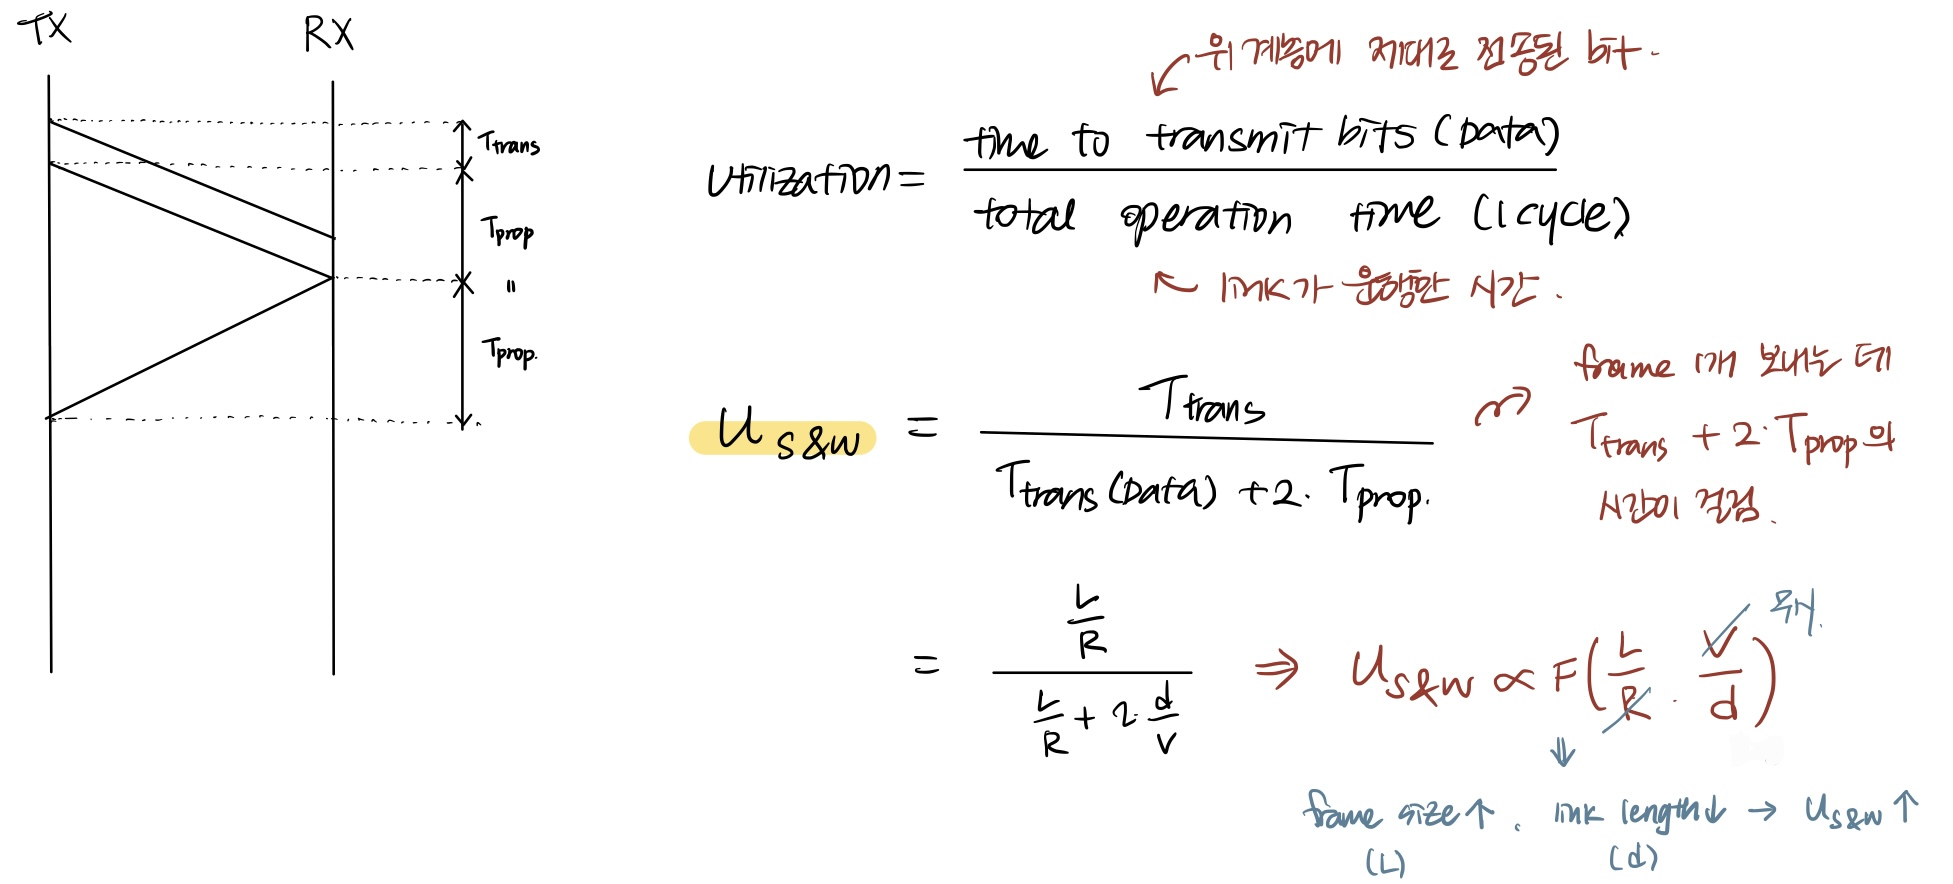 TX
RX
Ttrans
Tprop
=
Tprop.
위 계층에 제대로 전송된 bit.
Utilization = time to transmit bits (Data)
total operation time (1 cycle)
link가 운행한 시간.
U s&w = Ttrans
Ttrans (Data) + 2· Tprop.
frame 1개 보내는 데
Ttrans + 2· Tprop의
시간이 걸림.
= L/R
L/R + 2· d/V
⇒ U s&w ∝ F(L/R · V/d)
무시.
⇓
frame size↑, link length↓ → U s&w ↑
(L) (d)